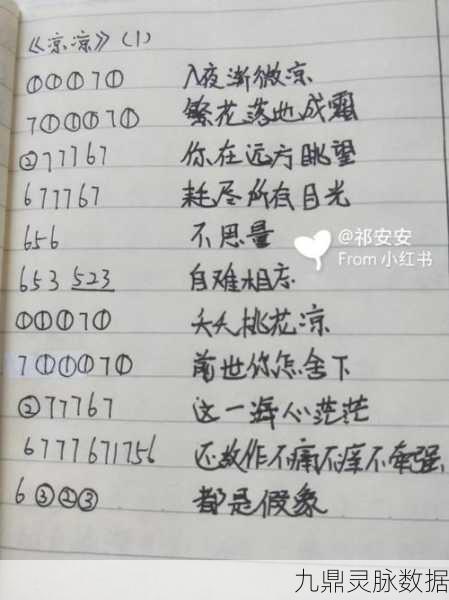 《凉凉》(1)
①①①7① 入夜渐微凉
7①①①7① 繁花落地成霜
②77767 你在远方眺望
677767 耗尽所有目光
656 不思量
653 523 自难相忘
①①①7① 夭夭桃花凉
7①①①7① 前世你怎舍下
②77767 这一海心茫茫
6777671756 还故作不痛不痒不牵强
6③②③ 都是假象
@祁安安
From 小红书
九鼎灵脉数据